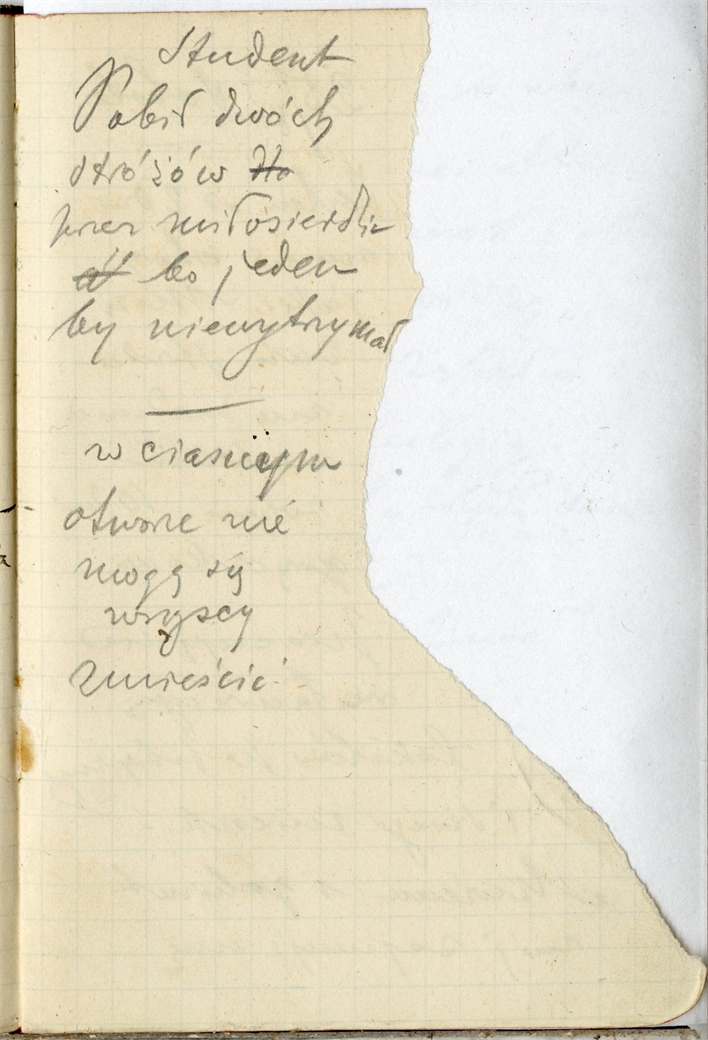 Student
Pobił dwóch
stróżów
przez miłosierdzie
bo jeden
by niewytrzymał
w ciasnym
otworze nie
mogą się
wszyscy
zmieścić